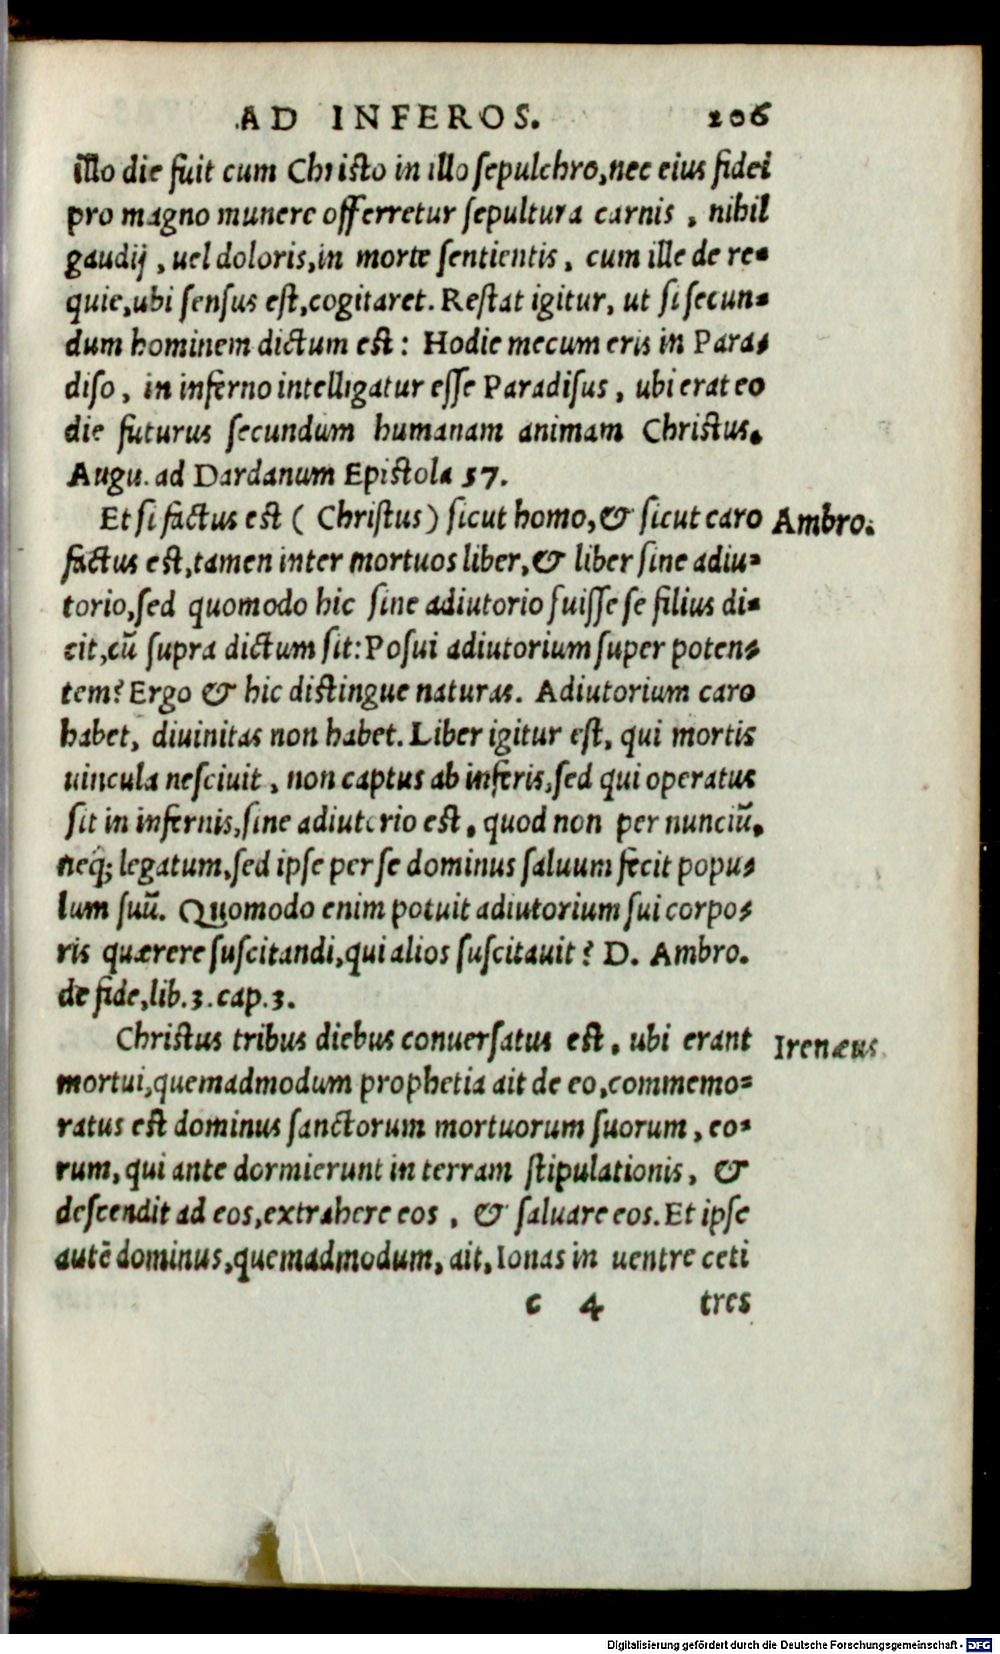 AD INFEROS. 206
illo die fuit cum Christo in illo sepulchro, nec eius fidei
pro magno munere offerretur sepultura carnis, nihil
gaudij, uel doloris, in morte sentientis, cum ille de re-
quie, ubi sensus est, cogitaret. Restat igitur, ut si secun-
dum hominem dictum est: Hodie mecum eris in Para-
diso, in inferno intelligatur esse Paradisus, ubi erat eo
die futurus secundum humanam animam Christus.
Augu. ad Dardanum Epistola 57.
Et si factus est (Christus) sicut homo, & sicut caro Ambro.
factus est, tamen inter mortuos liber, & liber sine adiu-
torio, sed quomodo hic sine adiutorio fuisse se filius di-
cit, cũ supra dictum sit: Posui adiutorium super poten-
tem? Ergo & hic distingue naturas. Adiutorium caro
habet, diuinitas non habet. Liber igitur est, qui mortis
uincula nesciuit, non captus ab inferis, sed qui operatus
sit in infernis, sine adiutorio est, quod non per nunciũ,
neq́; legatum, sed ipse per se dominus saluum fecit popu-
lum suũ. Quomodo enim potuit adiutorium sui corpo-
ris quærere suscitandi, qui alios suscitauit? D. Ambro.
de fide, lib. 3. cap. 3.
Christus tribus diebus conuersatus est, ubi erant Irenæus.
mortui, quemadmodum prophetia ait de eo, commemo-
ratus est dominus sanctorum mortuorum suorum, eo-
rum, qui ante dormierunt in terram stipulationis, &
descendit ad eos, extrahere eos, & saluare eos. Et ipse
autẽ dominus, quemadmodum, ait, Ionas in uentre ceti
c 4 tres
Digitalisierung gefördert durch die Deutsche Forschungsgemeinschaft - DFG